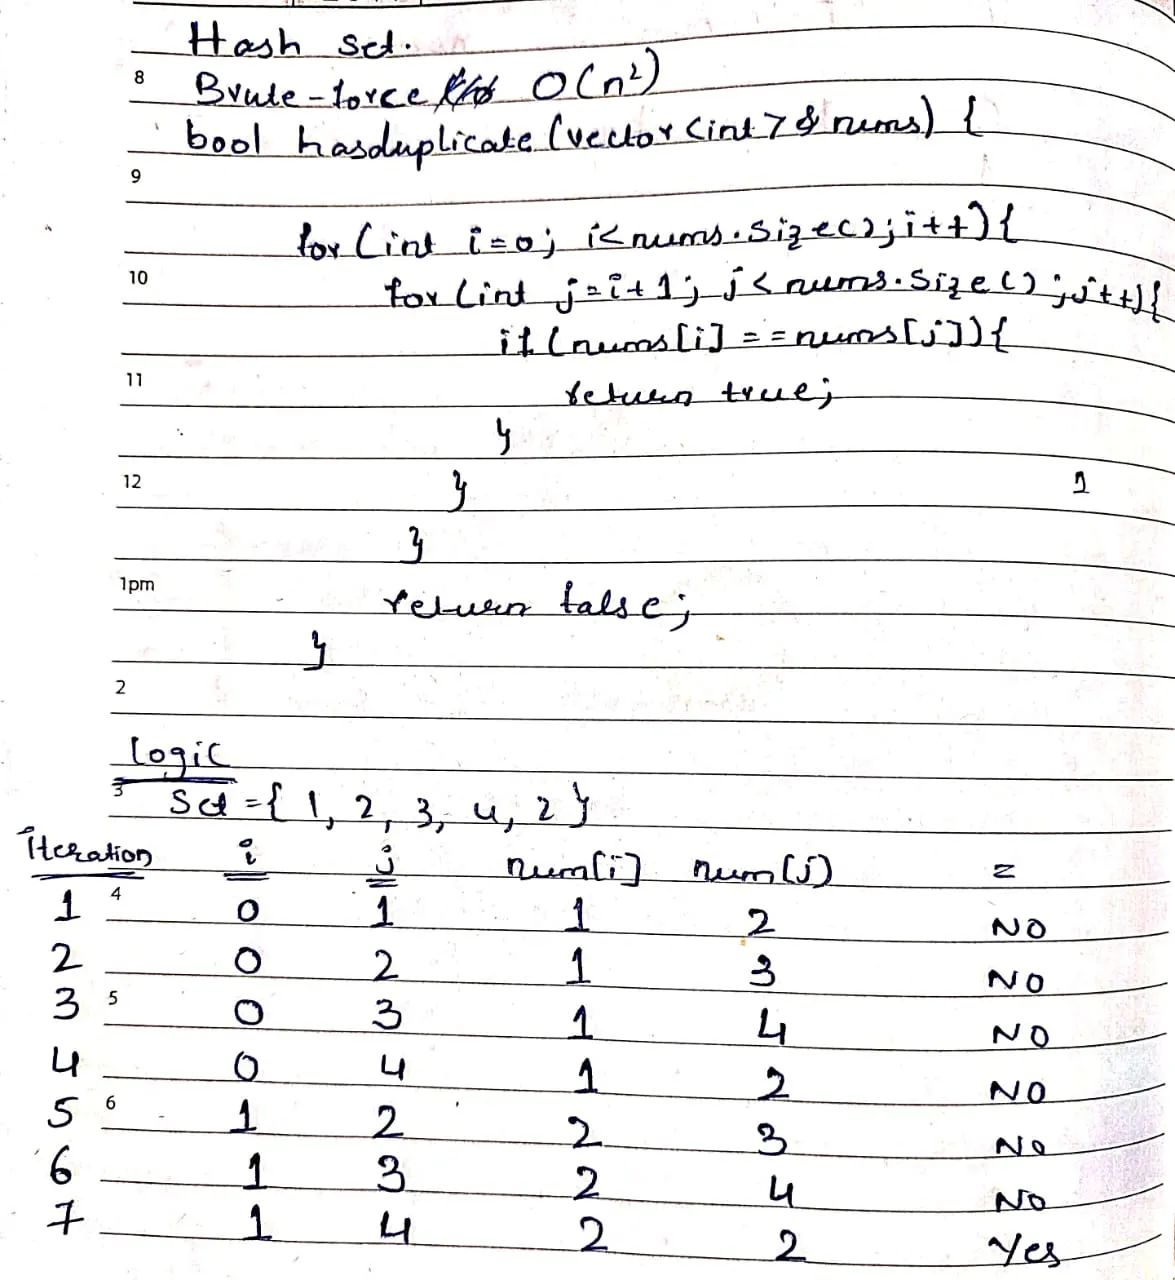 Hash set.
8
Brute-force O(n²)
bool hasduplicate(vector<int>& nums) {
9
for (int i=0; i<nums.size(); i++){
10
for (int j=i+1; j<nums.size(); j++){
if (nums[i] == nums[j]){
11
return true;
}
12 } 1
}
1pm
return false;
}
2
Logic
3
Set = { 1, 2, 3, 4, 2 }
Iteration i j num[i] num[j] =
1 4 0 1 1 2 NO
2 0 2 1 3 NO
3 5 0 3 1 4 NO
4 0 4 1 2 NO
5 6 1 2 2 3 NO
6 1 3 2 4 NO
7 1 4 2 2 Yes